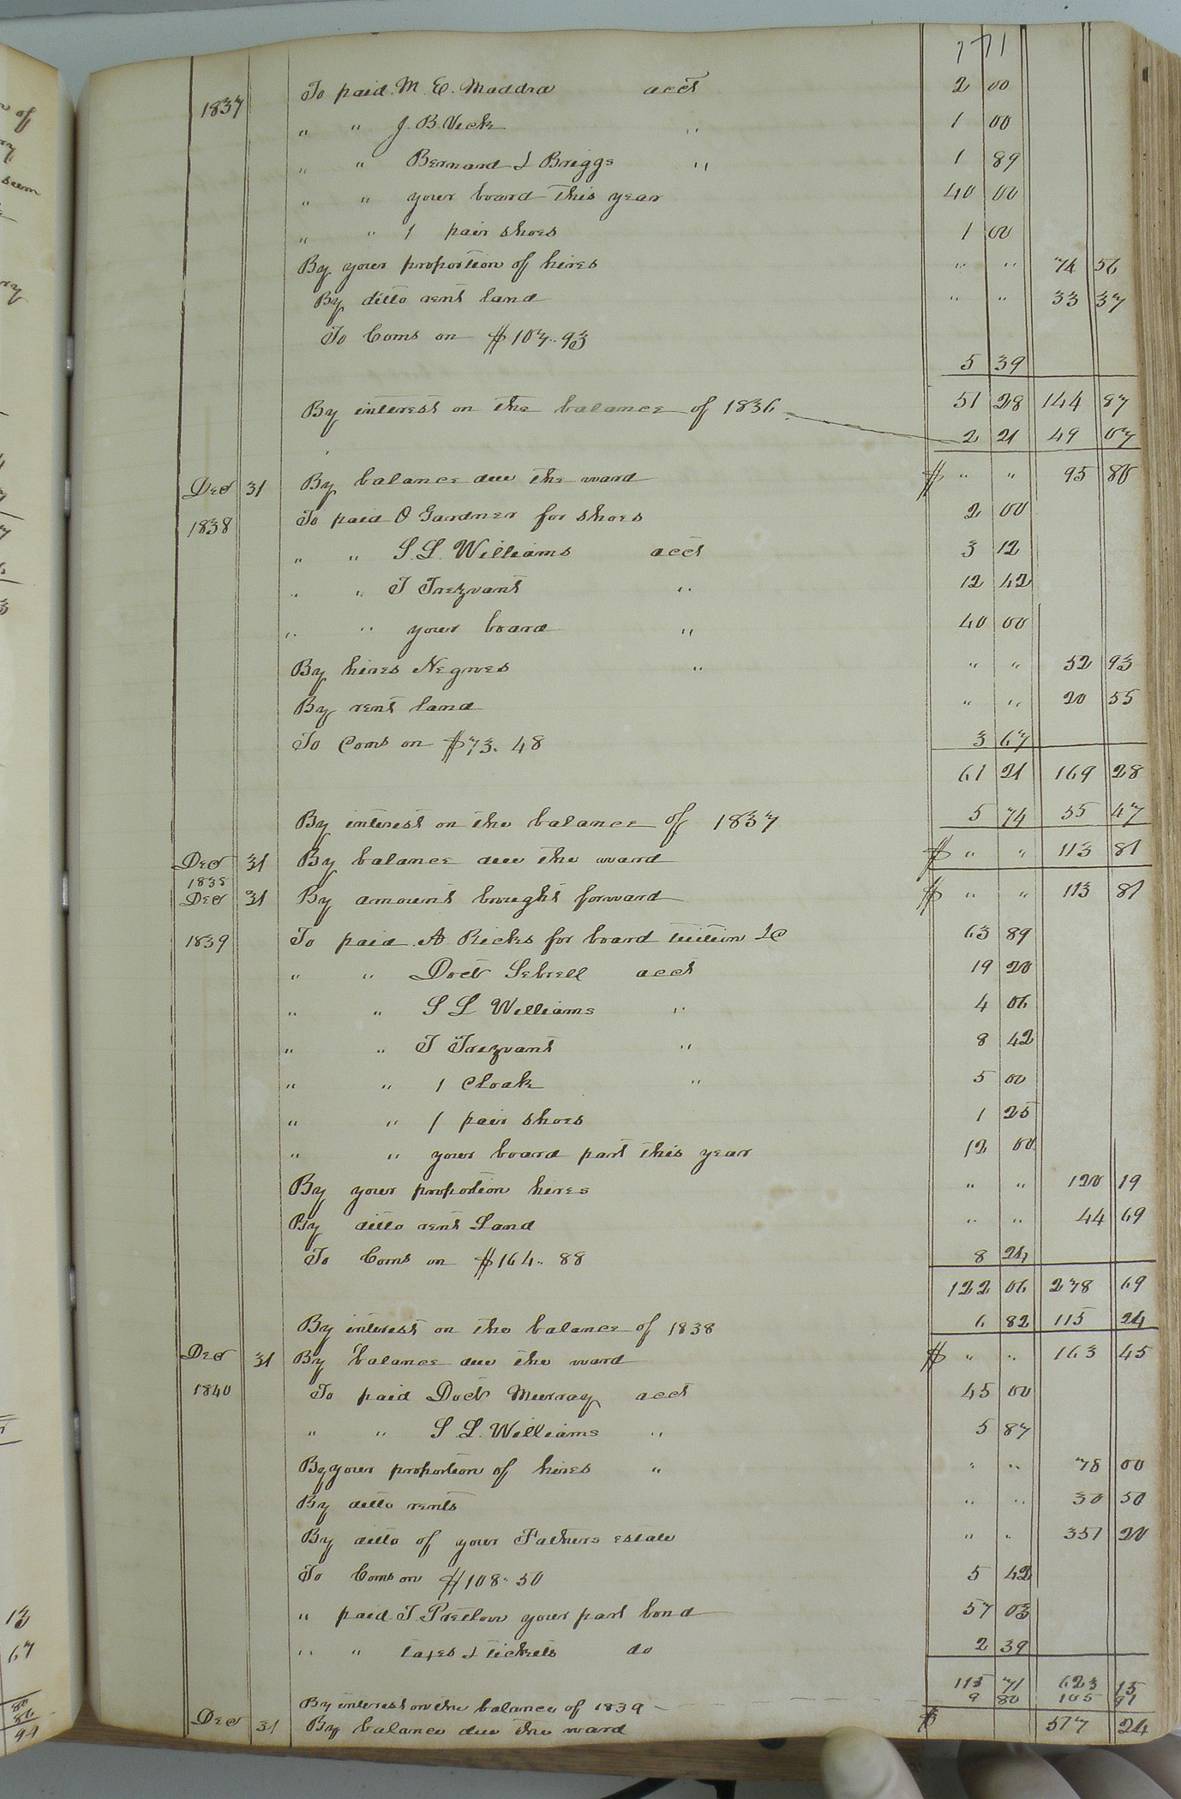 171
1837 To paid M. E. Maddra acct 2 00
" " J. B. Vick " 1 00
" " Bernard & Briggs " 1 89
" " your board this year 40 00
" " 1 pair shoes 1 00
By your proportion of hires " " 74 56
By ditto rent land " " 33 37
To Coms on $107..93
5 39
By interest on the balance of 1836 51 28 144 87
2 21 49 07
Dec 31 By balance due the ward $ " " 95 80
1838 To paid O Gardner for shoes 2 00
" " S. L. Williams acct 3 12
" " T Trezvant " 12 42
" " your board " 40 00
By hires Negroes " " " 52 93
By rent land " " 20 55
To Coms on $73. 48 3 67
61 21 169 28
By interest on the balance of 1837 5 74 55 47
Dec 31 By balance due the ward $ " " 113 81
1838
Dec 31 By amount brought forward $ " " 113 81
1839 To paid A Ricks for board tuition &c 63 89
" " Doct Sebrell acct 19 20
" " S L Williams " 4 06
" " T Trezvant " 8 42
" " 1 Cloak " 5 00
" " 1 pair shoes 1 25
" " your board part this year 12 00
By your proportion hires " " 120 19
By ditto rent Land " " 44 69
To Coms on $164.. 88 8 24
122 06 278 69
By interest on the balance of 1838 6 82 115 24
Dec 31 By balance due the ward $ " " 163 45
1840 To paid Doct Murray acct 45 00
" " S. L. Williams " 5 87
By your proportion of hires " " " 78 00
By ditto rents " " 30 50
By ditto of your Fathers estate " " 351 20
To Coms on $108.. 50 5 42
" paid T. Pretlow your part bond 57 03
" " taxes & tickets do 2 39
115 71 623 15
By interest on the balance of 1839 9 80 105 91
Dec 31 By balance due the ward $ 517 24